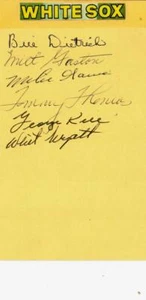 WHITE SOX
Bill Dietrich
Milt Gaston
Tommy Thomas
George
Whit Wyatt